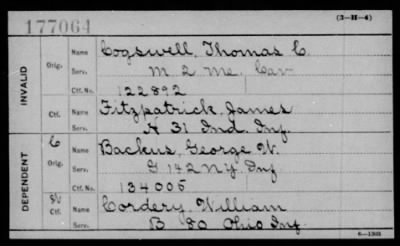 177064
(3—H—4)
INVALID
Orig. Name Cogswell, Thomas C.
Serv. M 2 Me. Cav
Ctf. No. 122892
Ctf. Name Fitzpatrick, James
Serv. A 31 Ind. Inf.
DEPENDENT
Orig. Name Backus, George W.
Serv. G 142 N.Y. Inf
Ctf. No. 134005
Ctf. Name Cordery, William
Serv. B 80 Ohio Inf.